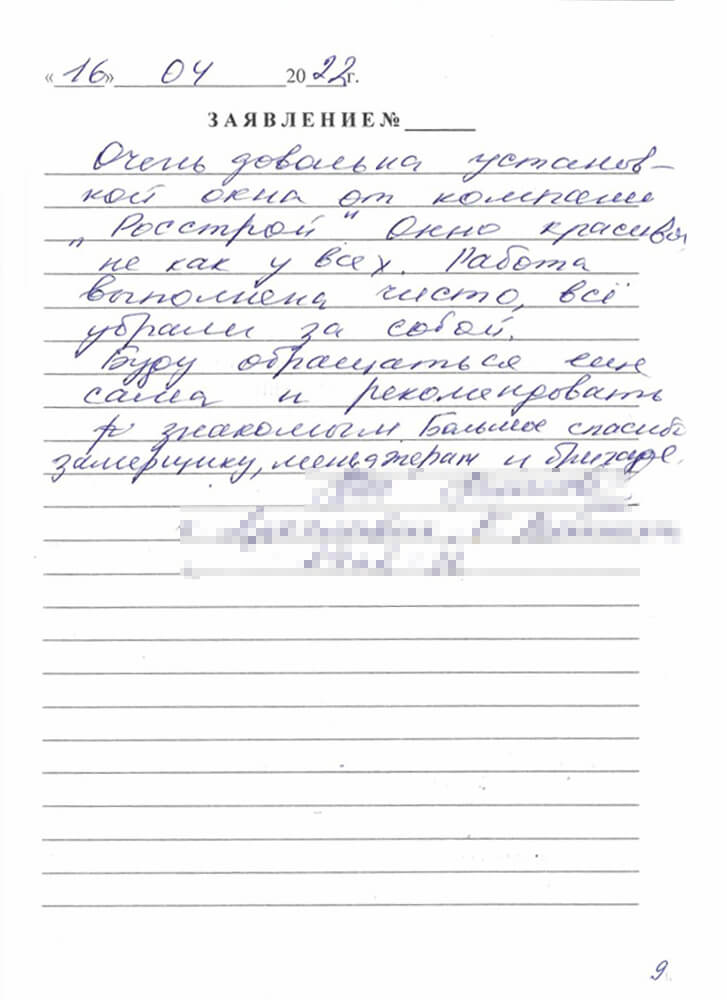 «16» 04 2022г.
ЗАЯВЛЕНИЕ№
Очень довальна установ-
кой окна от компании
„Росстрой" Окно красивое
не как у всех. Работа
выполнена чисто, всё
убрали за собой.
Буду обращаться еще
сама и рекомендовать
знакомым Большое спасибо
замерщику, менеджерам и бригаде.
9